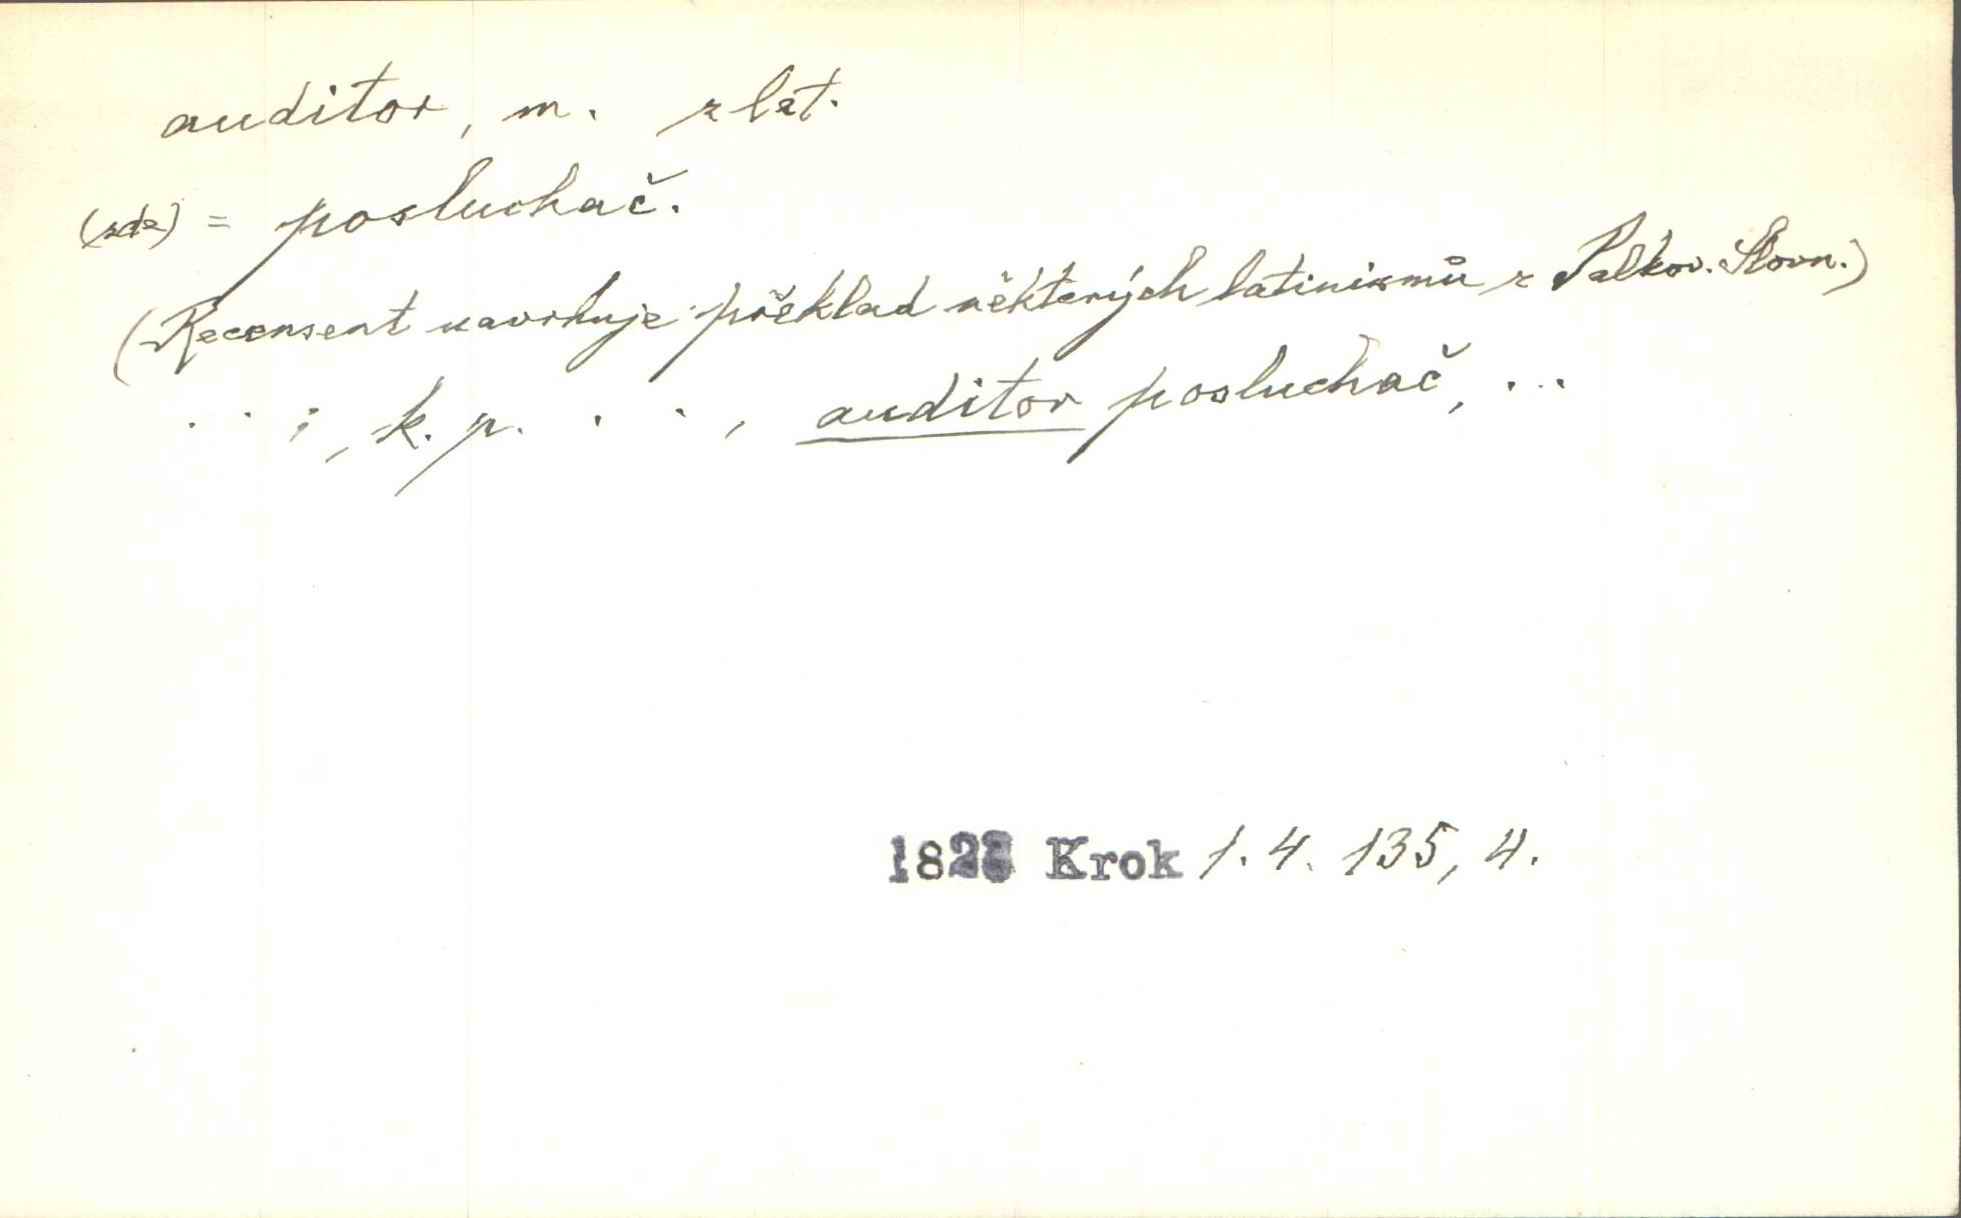 auditor, m. z lat.
(zde) = posluchač.
(Recensent navrhuje překlad některých latinismů z Palkov. Slovn.)
. . ; , k. p. . . , auditor posluchač, ...
1823 Krok 1. 4. 135, 4.